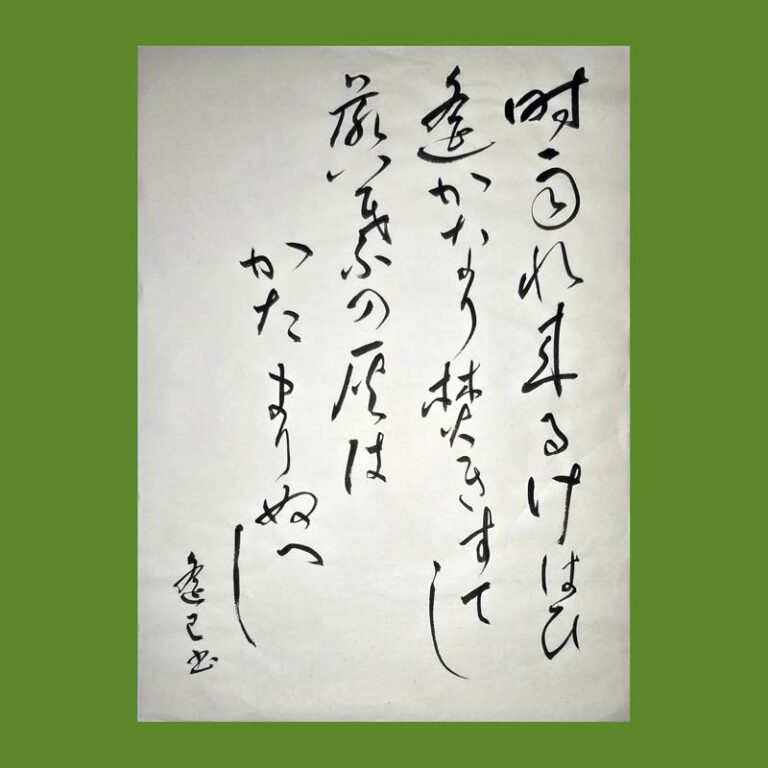 時雨れ来るけはひ
遙かなり焚きすてし
落葉の灰は
かたまりぬへし
遙己書